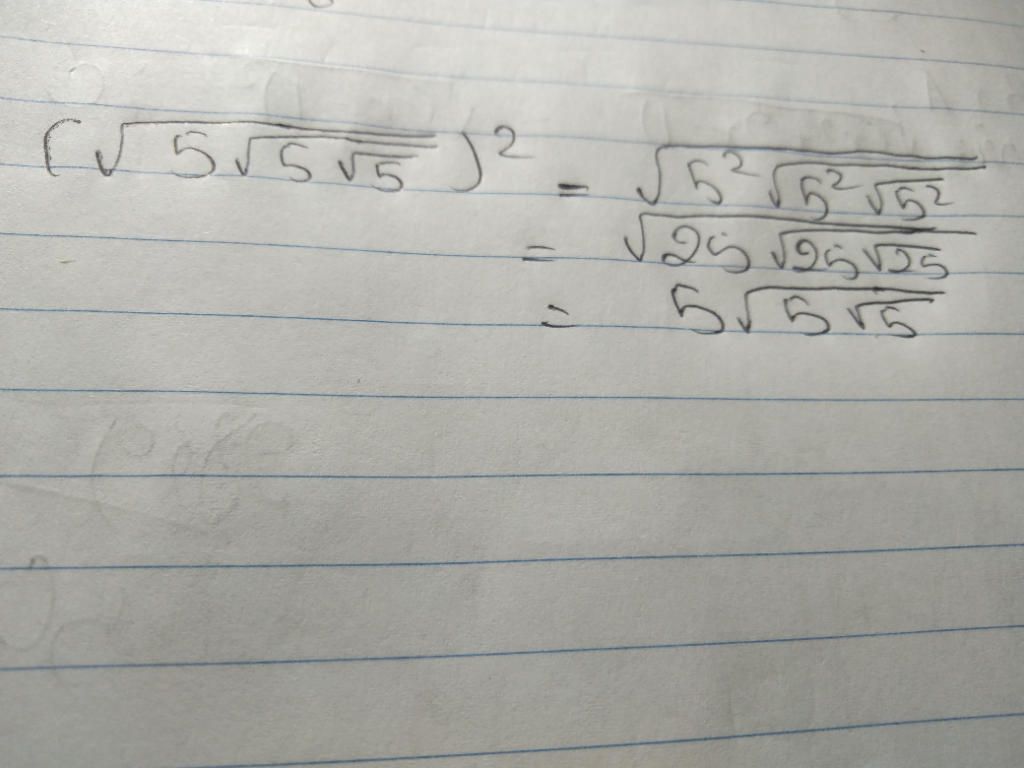 (√5√5√5)² = √5²√5²√5²
= √25√25√25
= 5√5√5